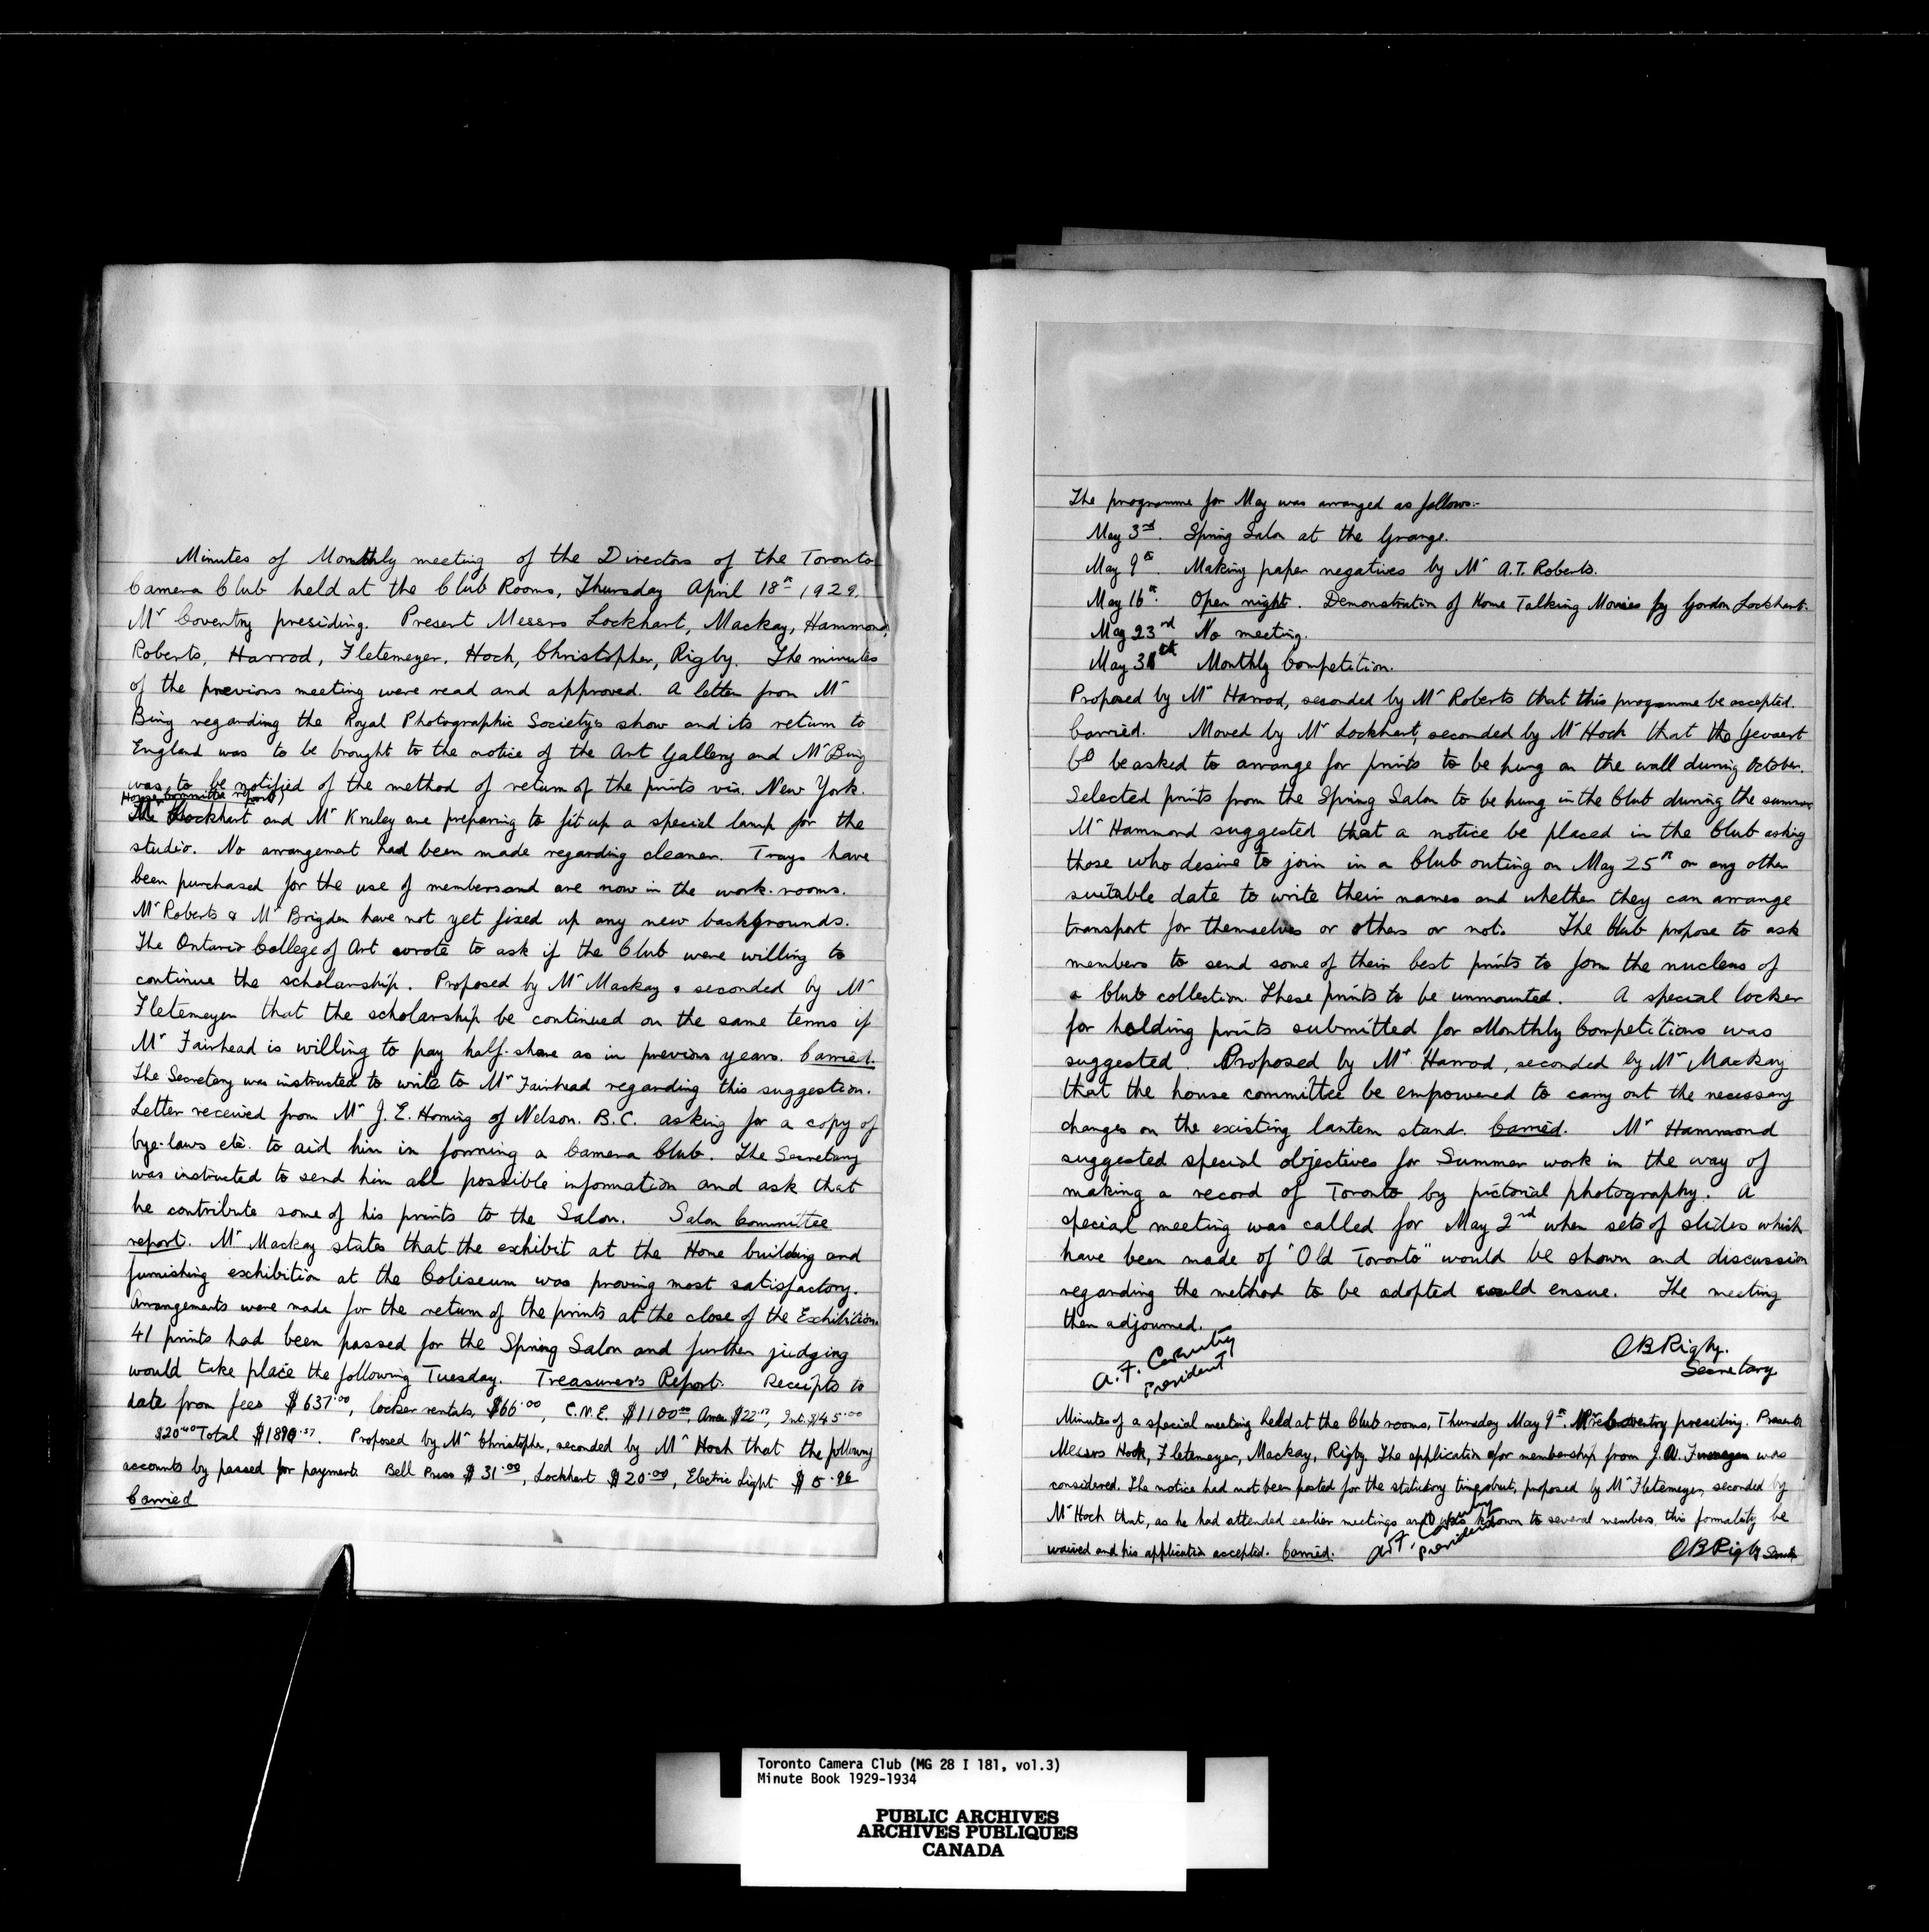 Minutes of Monthly meeting of the Directors of the Toronto
Camera Club held at the Club Rooms, Thursday April 18th 1929.
Mr Coventry presiding. Present Messrs Lockhart, Mackay, Hammond,
Roberts, Harrod, Fletemeyer, Hoch, Christopher, Rigby. The minutes
of the previous meeting were read and approved. A letter from Mr
Bing regarding the Royal Photographic Society's show and its return to
England was to be brought to the notice of the Art Gallery and Mr Bing
was to be notified of the method of return of the prints via. New York.
House Committee report)
Lockhart and Mr Kruley are preparing to fit up a special lamp for the
studio. No arrangement had been made regarding cleaner. Trays have
been purchased for the use of members and are now in the work-rooms.
Mr Roberts & Mr Brigden have not yet fixed up any new backgrounds.
The Ontario College of Art wrote to ask if the Club were willing to
continue the scholarship. Proposed by Mr Mackay & seconded by Mr
Fletemeyer that the scholarship be continued on the same terms if
Mr Fairhead is willing to pay half-share as in previous years. Carried.
The Secretary was instructed to write to Mr Fairhead regarding this suggestion.
Letter received from Mr J. E. Horning of Nelson. B.C. asking for a copy of
bye-laws etc. to aid him in forming a Camera Club. The Secretary
was instructed to send him all possible information and ask that
he contribute some of his prints to the Salon. Salon Committee
report. Mr Mackay states that the exhibit at the Home building and
furnishing exhibition at the Coliseum was proving most satisfactory.
Arrangements were made for the return of the prints at the close of the Exhibition.
41 prints had been passed for the Spring Salon and further judging
would take place the following Tuesday. Treasurer's Report. Receipts to
date from fees $637.00, locker rentals, $66.00, C.N.E. $1100.00, $22.17, Int. $45.00
$20.40 Total $1890.57. Proposed by Mr Christopher, seconded by Mr Hoch that the following
accounts by passed for payment. Bell Press $31.00, Lockhart $20.00, Electric Light $5.96
Carried
The programme for May was arranged as follows:-
May 3rd. Spring Salon at the Grange.
May 9th. Making paper negatives by Mr A.T. Roberts.
May 16th. Open night. Demonstration of Home Talking Movies by Gordon Lockhart.
May 23rd No meeting.
May Monthly Competition.
Proposed by Mr Harrod, seconded by Mr Roberts that this programme be accepted.
Carried. Moved by Mr Lockhart, seconded by Mr Hoch that the Gevaert
Co be asked to arrange for prints to be hung on the wall during October.
Selected prints from the Spring Salon to be hung in the Club during the summer
Mr Hammond suggested that a notice be placed in the Club asking
those who desire to join in a Club outing on May 25th or any other
suitable date to write their names and whether they can arrange
transport for themselves or others or not. The Club propose to ask
members to send some of their best prints to form the nucleus of
a Club collection. These prints to be unmounted. A special locker
for holding prints submitted for Monthly Competitions was
suggested. Proposed by Mr Harrod, seconded by Mr Mackay
that the house committee be empowered to carry out the necessary
changes on the existing lantern stand. Carried. Mr Hammond
suggested special objectives for Summer work in the way of
making a record of Toronto by pictorial photography. A
special meeting was called for May 2nd when sets of slides which
have been made of "Old Toronto" would be shown and discussion
regarding the method to be adopted would ensue. The meeting
then adjourned.
A. F. Coventry
President
C B Rigby.
Secretary
Minutes of a special meeting held at the Club rooms, Thursday May 9th. Mr Coventry presiding. Present
Messrs Hoch, Fletemeyer, Mackay, Rigby. The application for membership from J. W. was
considered. The notice had not been posted for the statutory time, but, proposed by Mr Fletemeyer, seconded by
Mr Hoch that, as he had attended earlier meetings and was known to several members, this formality be
waived and his application accepted. Carried.
A.F. Coventry
President
C B Rigby
Toronto Camera Club (MG 28 I 181, vol.3)
Minute Book 1929-1934
PUBLIC ARCHIVES
ARCHIVES PUBLIQUES
CANADA